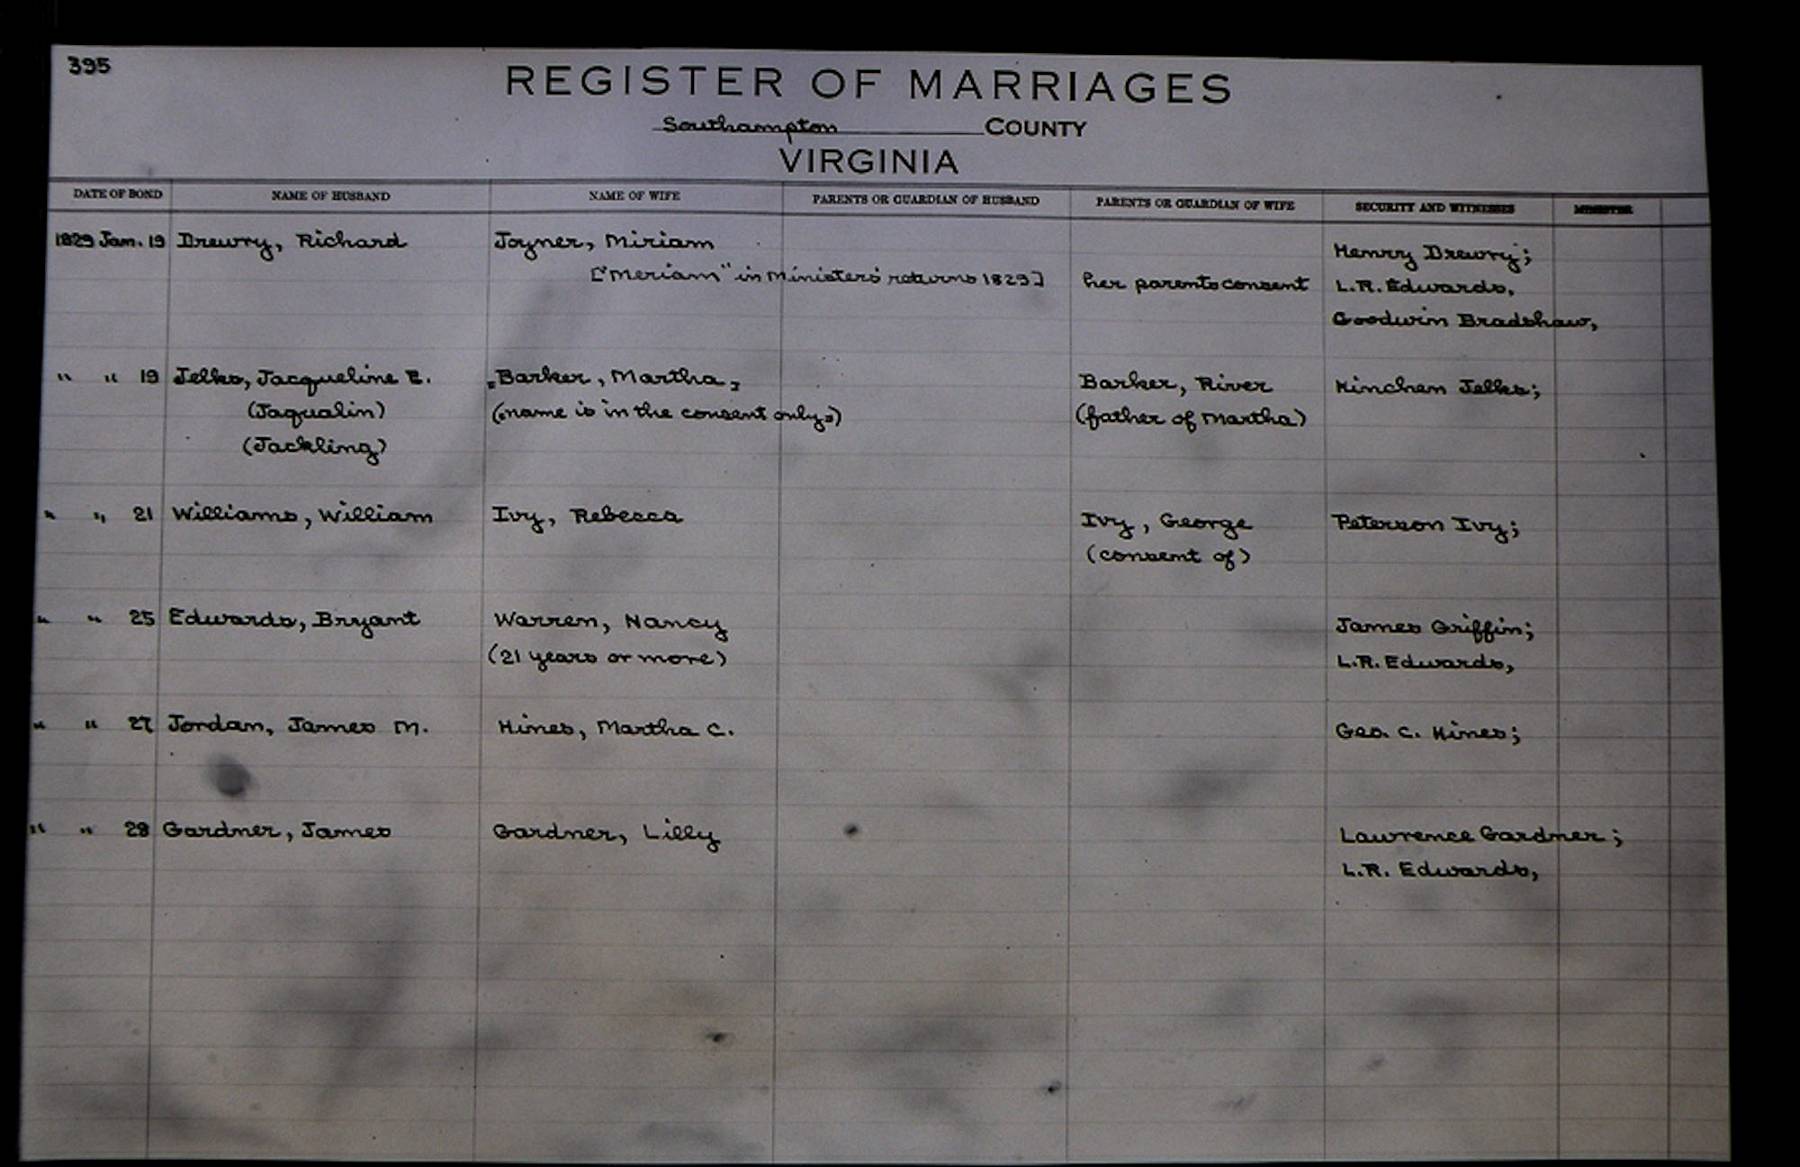 395
REGISTER OF MARRIAGES
Southampton COUNTY
VIRGINIA
DATE OF BOND NAME OF HUSBAND NAME OF WIFE PARENTS OR GUARDIAN OF HUSBAND PARENTS OR GUARDIAN OF WIFE SECURITY AND WITNESSES MINISTER
1829 Jan. 19 Drewry, Richard Joyner, Miriam Henry Drewry;
["Meriam" in Ministers' returns 1829] her parents consent L.R. Edwards,
Goodwin Bradshaw,
" " 19 Jelks, Jacqueline E. Barker, Martha, Barker, River Kinchen Jelks;
(Jaqualin) (name is in the consent only) (father of Martha)
(Jackling)
" " 21 Williams, William Ivy, Rebecca Ivy, George Peterson Ivy;
(consent of)
" " 25 Edwards, Bryant Warren, Nancy James Griffin;
(21 years or more) L.R. Edwards,
" " 27 Jordan, James M. Hines, Martha C. Geo. C. Hines;
" " 28 Gardner, James Gardner, Lilly Lawrence Gardner;
L.R. Edwards,